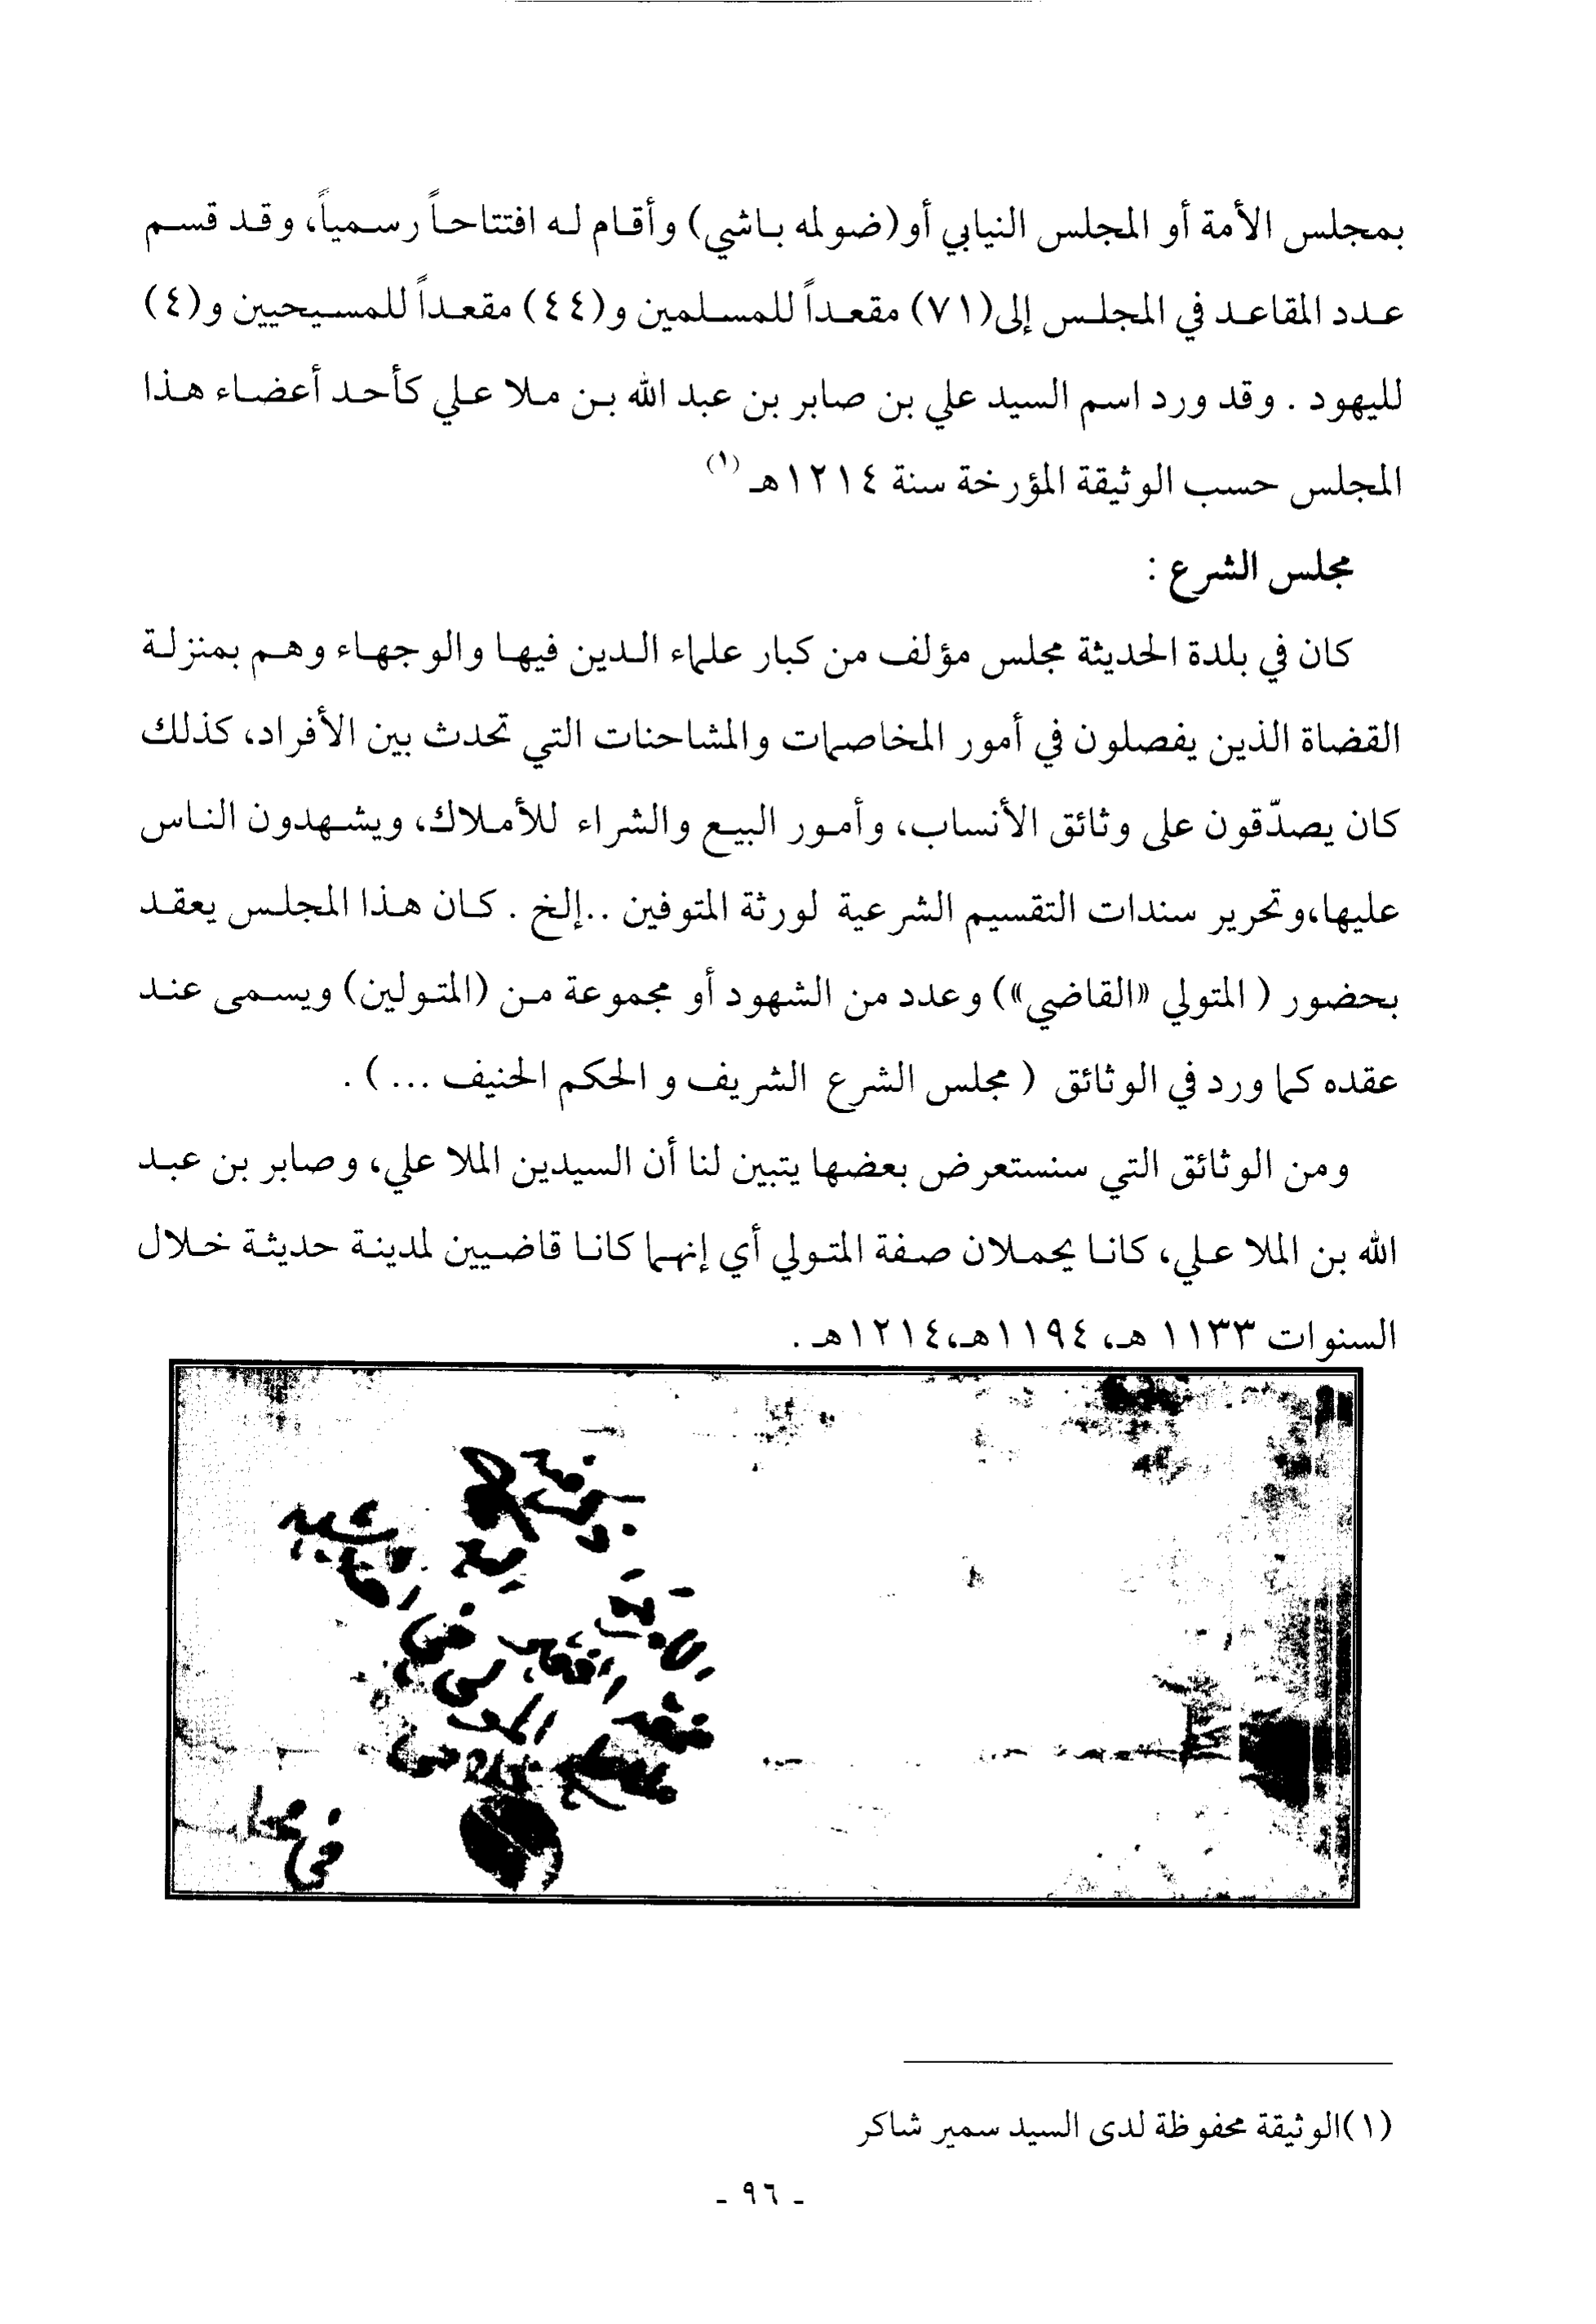 بمجلس الأمة أو المجلس النيابي أو(ضولمه باشي) وأقام له افتتاحاً رسمياً، وقد قسم
عدد المقاعد في المجلس إلى(٧١) مقعداً للمسلمين و(٤٤) مقعداً للمسيحيين و(٤)
لليهود . وقد ورد اسم السيد علي بن صابر بن عبد الله بن ملا علي كأحد أعضاء هذا
المجلس حسب الوثيقة المؤرخة سنة ١٢١٤هـ (١)
مجلس الشرع :
كان في بلدة الحديثة مجلس مؤلف من كبار علماء الدين فيها والوجهاء وهم بمنزلة
القضاة الذين يفصلون في أمور المخاصمات والمشاحنات التي تحدث بين الأفراد، كذلك
كان يصدّقون على وثائق الأنساب، وأمور البيع والشراء للأملاك، ويشهدون الناس
عليها،وتحرير سندات التقسيم الشرعية لورثة المتوفين ..إلخ . كان هذا المجلس يعقد
بحضور ( المتولي «القاضي») وعدد من الشهود أو مجموعة من (المتولين) ويسمى عند
عقده كما ورد في الوثائق ( مجلس الشرع الشريف و الحكم الحنيف ...) .
ومن الوثائق التي سنستعرض بعضها يتبين لنا أن السيدين الملا علي، وصابر بن عبد
الله بن الملا علي، كانا يحملان صفة المتولي أي إنهما كانا قاضيين لمدينة حديثة خلال
السنوات ١١٣٣ هـ، ١١٩٤هـ،١٢١٤هـ .
(١)الوثيقة محفوظة لدى السيد سمير شاكر
- ٩٦ -